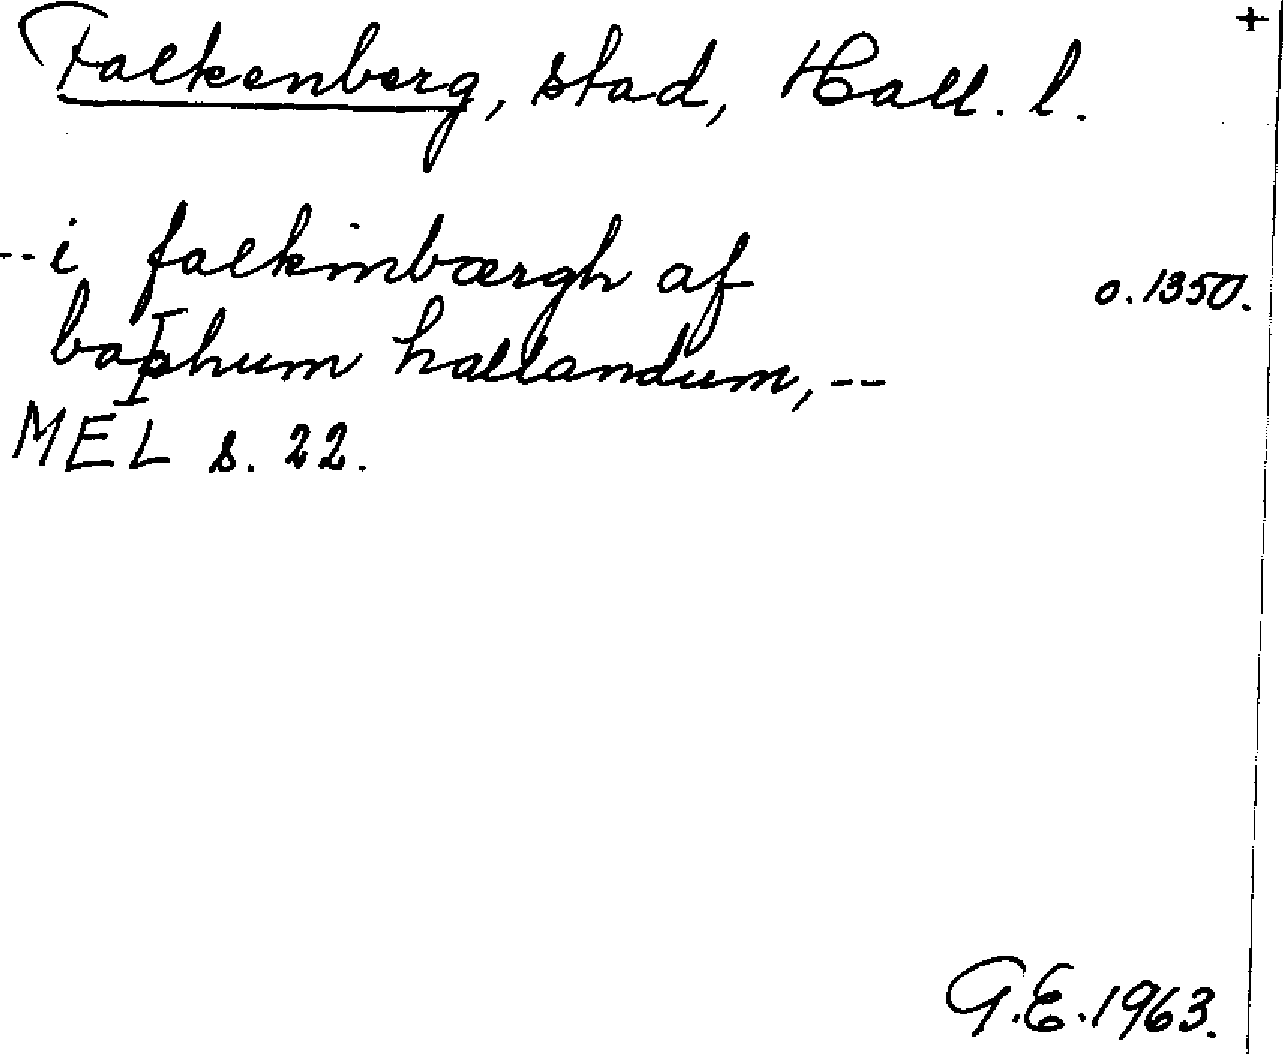 +
Falkenberg, stad, Hall. l.
--i falkinbærgh af
o. 1350.
baþhum hallandum, --
MEL s. 22.
G.E. 1963.